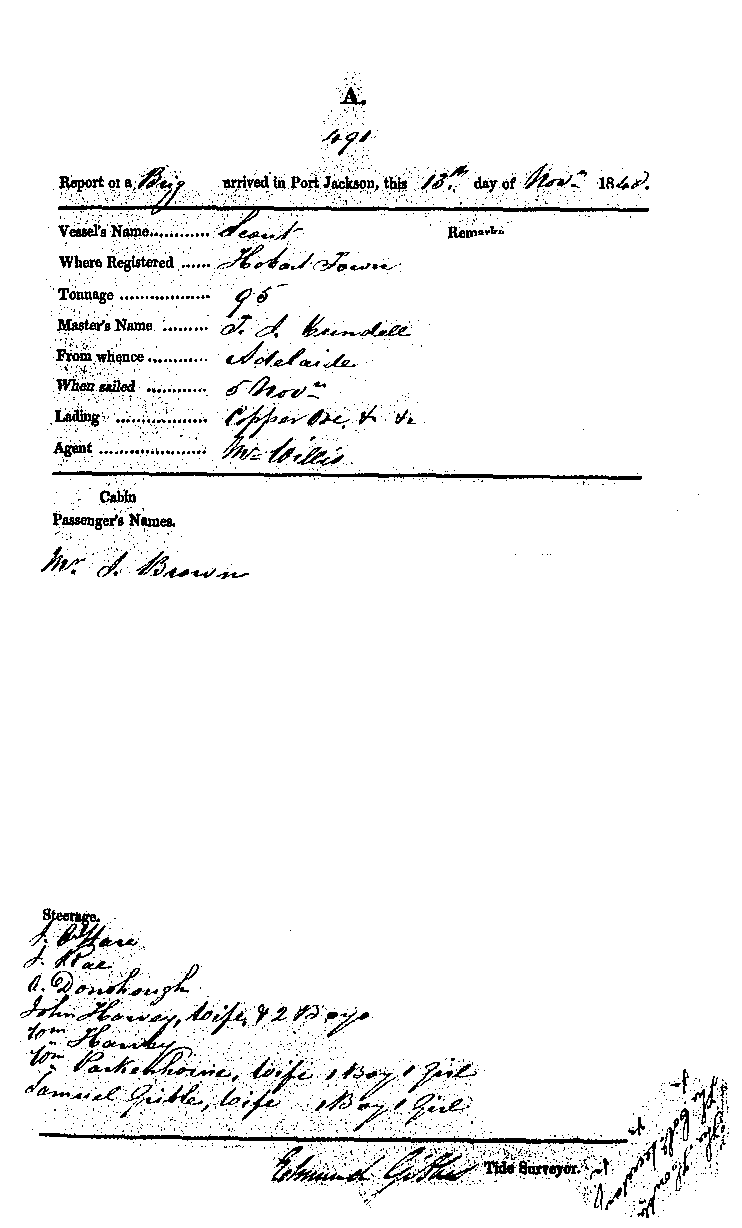 A.
491
Report of a Brig arrived in Port Jackson, this 13th day of Novr 1848.
Vessel's Name........... Scout Remarks
Where Registered ...... Hobart Town
Tonnage .................. 95
Master's Name ......... T. J. Kundell
From whence............ Adelaide
When sailed ............ 5 Novr
Lading .................. Copper Ore, & &c
Agent ..................... Mr Willis
Cabin
Passenger's Names.
Mr J. Brown
Steerage.
J. O'Hare
J. Rae
A. Donohough
John Harvey, Wife, & 2 Boys
Wm Harvey
Wm Parkenhorne, Wife 1 Boy 1 Girl
Samuel Gribble, Wife 1 Boy 1 Girl
Edmund Tide Surveyor.
The